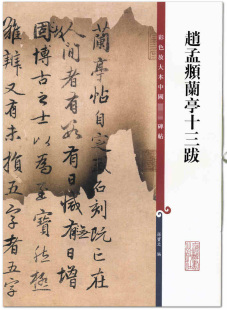 趙孟頫蘭亭十三跋
彩色放大本中國
碑帖
孫寶文 編
蘭亭帖自定武石刻既亡在
人間者有數有日減無日增
故博古之士以為至寶然極
難辨又有未損五字者五字